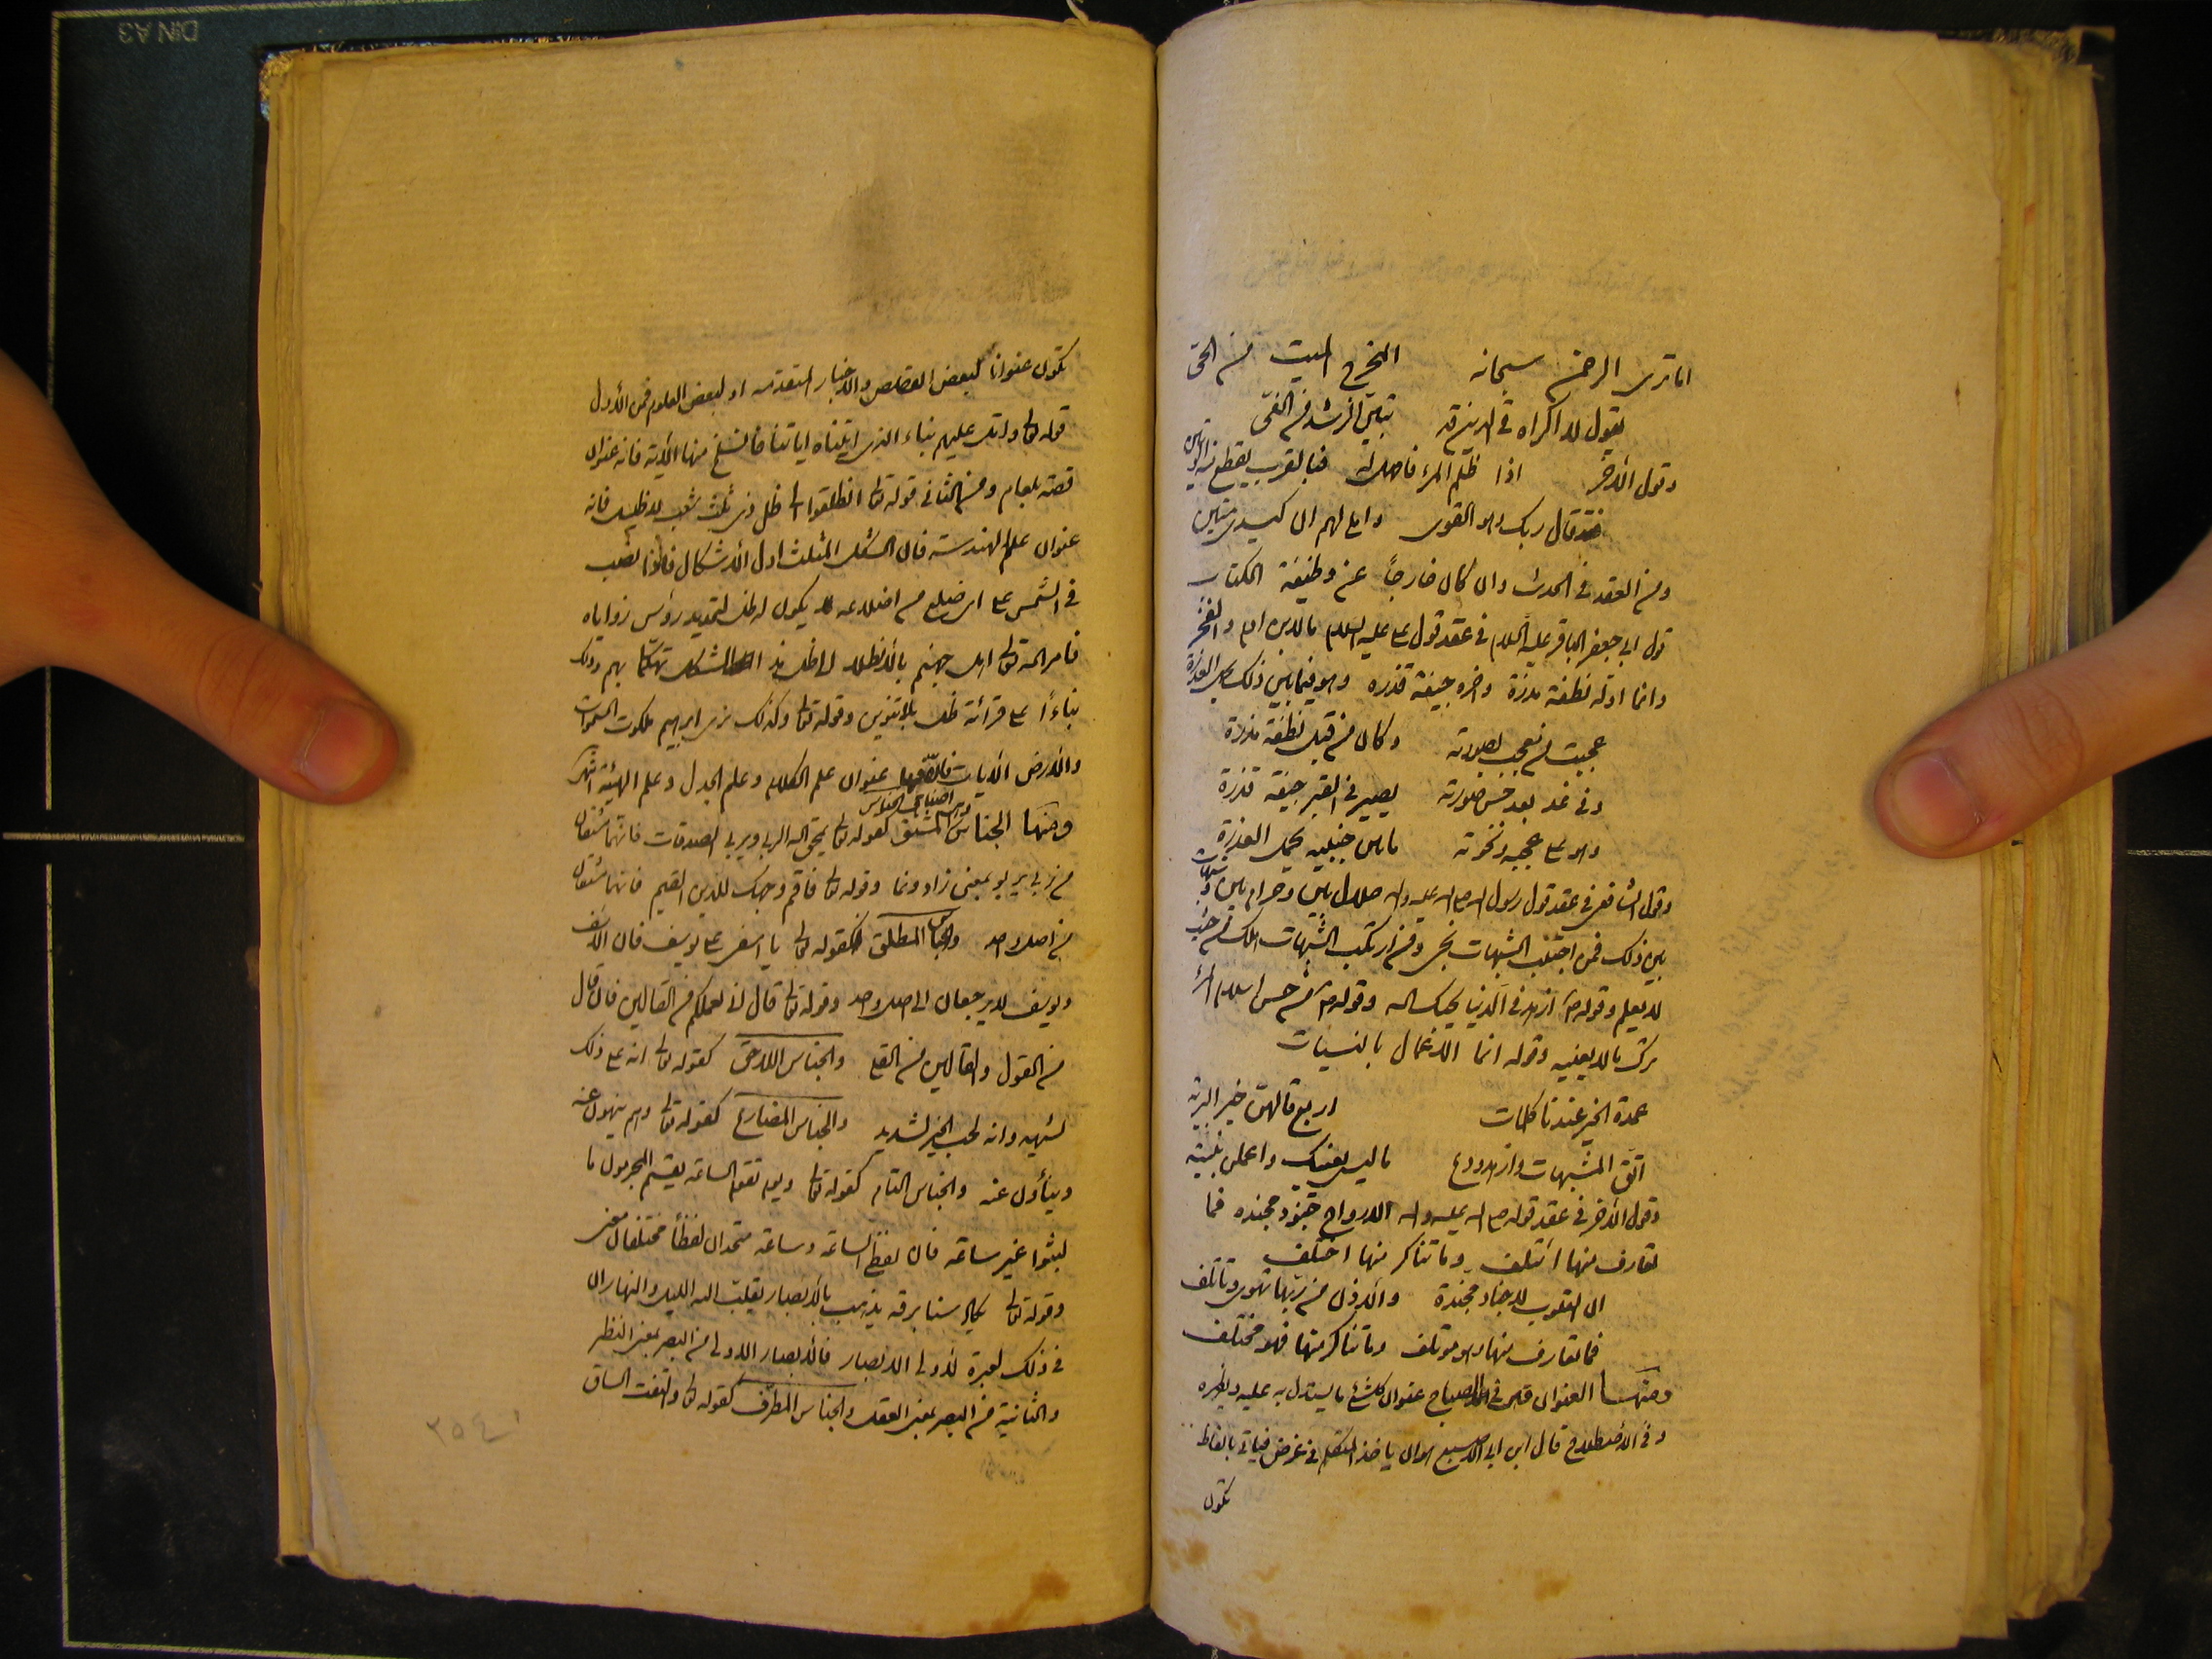 اما ترى الرحمن سبحانه المخرج الميت من الحى
يقول لا اكراه فى الدين قد تبين الرشد من الغى
وقول الاخر اذا ظلم المرء فاصبر له فبالقرب يقطع منه الوتين
فقد قال ربك وهو القوى واملى لهم ان كيدى متين
ومن العقد فى الحديث وان كان خارجاً عن وظيفة الكتاب
قول ابى جعفر الباقر عليه السلام فى عقد قول على عليه السلام ما لابن ادم والفخر
وانما اوله نطفة مذرة واخره جيفة قذره وهو فيما بين ذلك يحمل العذرة
عجبت من معجب بصورته وكان من قبل نطفة مذرة
وفى غد بعد حسن صورته يصير فى القبر جيفة قذرة
وهو على عجبه ونخوته ما بين جنبيه يحمل العذرة
وقول الشافعى فى عقد قول رسول الله صلى الله عليه واله حلال بين وحرام بين وشبهات
بين ذلك فمن اجتنب الشبهات نجى ومن ارتكب الشبهات هلك من حيث
لا يعلم وقوله ص ازهد فى الدنيا يحبك الله وقوله ص من حسن اسلام المرء
تركه ما لا يعنيه وقوله انما الاعمال بالنيات
عمدة الخير عندنا كلمات اربع قالهن خير البرية
اتق المشبهات وازهد ودع ما ليس يعنيك واعملن بنية
وقول الاخر فى عقد قوله صلى الله عليه واله الارواح جنود مجنده فما
تعارف منها ائتلف وما تناكر منها اختلف
ان القلوب لاجناد مجندة والاذن من ربها تهوى وتاتلف
فما تعارف منها وهو موتلف وما تناكر منها فهو مختلف
ومنها العنوان قال فى المصباح عنوان كل شئ ما يستدل به عليه ويظهره
وفى الاصطلاح قال ابن ابى الاصبع هو ان ياخذ المتكلم فى غرض فياتى بالفاظ
تكون
تكون عنوانا لبعض القصص والاخبار المتقدمه او لبعض العلوم فمن الاول
قوله تعالى واتل عليهم نباء الذى اتيناه اياتنا فانسلخ منها الاية فانه عنوان
قصة بلعام ومن الثانى قوله تعالى انطلقوا الى ظل ذى ثلث شعب لا ظليل فانه
عنوان علم الهندسة فان الشكل المثلث اول الاشكال فاذا نصب
فى الشمس على اى ضلع من اضلاعه لا يكون له ظل لتحديد رؤس زواياه
فامر الله تعالى اهل جهنم بالانطلاق الى ظل هذا الشكل تهكّما بهم وذلك
بناءً على قرائة ظل بلا تنوين وقوله تعالى وكذلك نرى ابراهيم ملكوت السموات
والارض الايات فان فيها عنوان علم الكلام وعلم الجدل وعلم الهيئة
ومنها الجناس المشتق كقوله تعالى يمحق الله الربى ويربى الصدقات فانهما مشتقان
من ربى يربو بمعنى زاد ونما وقوله تعالى فاقم وجهك للدين القيم فانهما مشتقان
من اصل واحد والجناس المطلق كقوله تعالى يا اسفى على يوسف فان الاسف
ويوسف لا يرجعان الى اصل واحد وقوله تعالى قال انى لعملكم من القالين فان قال
من القول والقالين من القلى والجناس اللاحق كقوله تعالى انه على ذلك
لشهيد وانه لحب الخير لشديد والجناس المضارع كقوله تعالى وهم ينهون عنه
وينأون عنه والجناس التام كقوله تعالى ويوم تقوم الساعة يقسم المجرمون ما
لبثوا غير ساعة فان لفظى الساعة وساعة متحدان لفظاً مختلفان معنى
وقوله تعالى يكاد سنا برقه يذهب بالابصار يقلب الله الليل والنهار ان
فى ذلك لعبرة لاولى الابصار فالابصار الاولى من البصر بمعنى النظر
والثانية من البصر بمعنى العقل والجناس المطرّف كقوله تعالى والتفت الساق